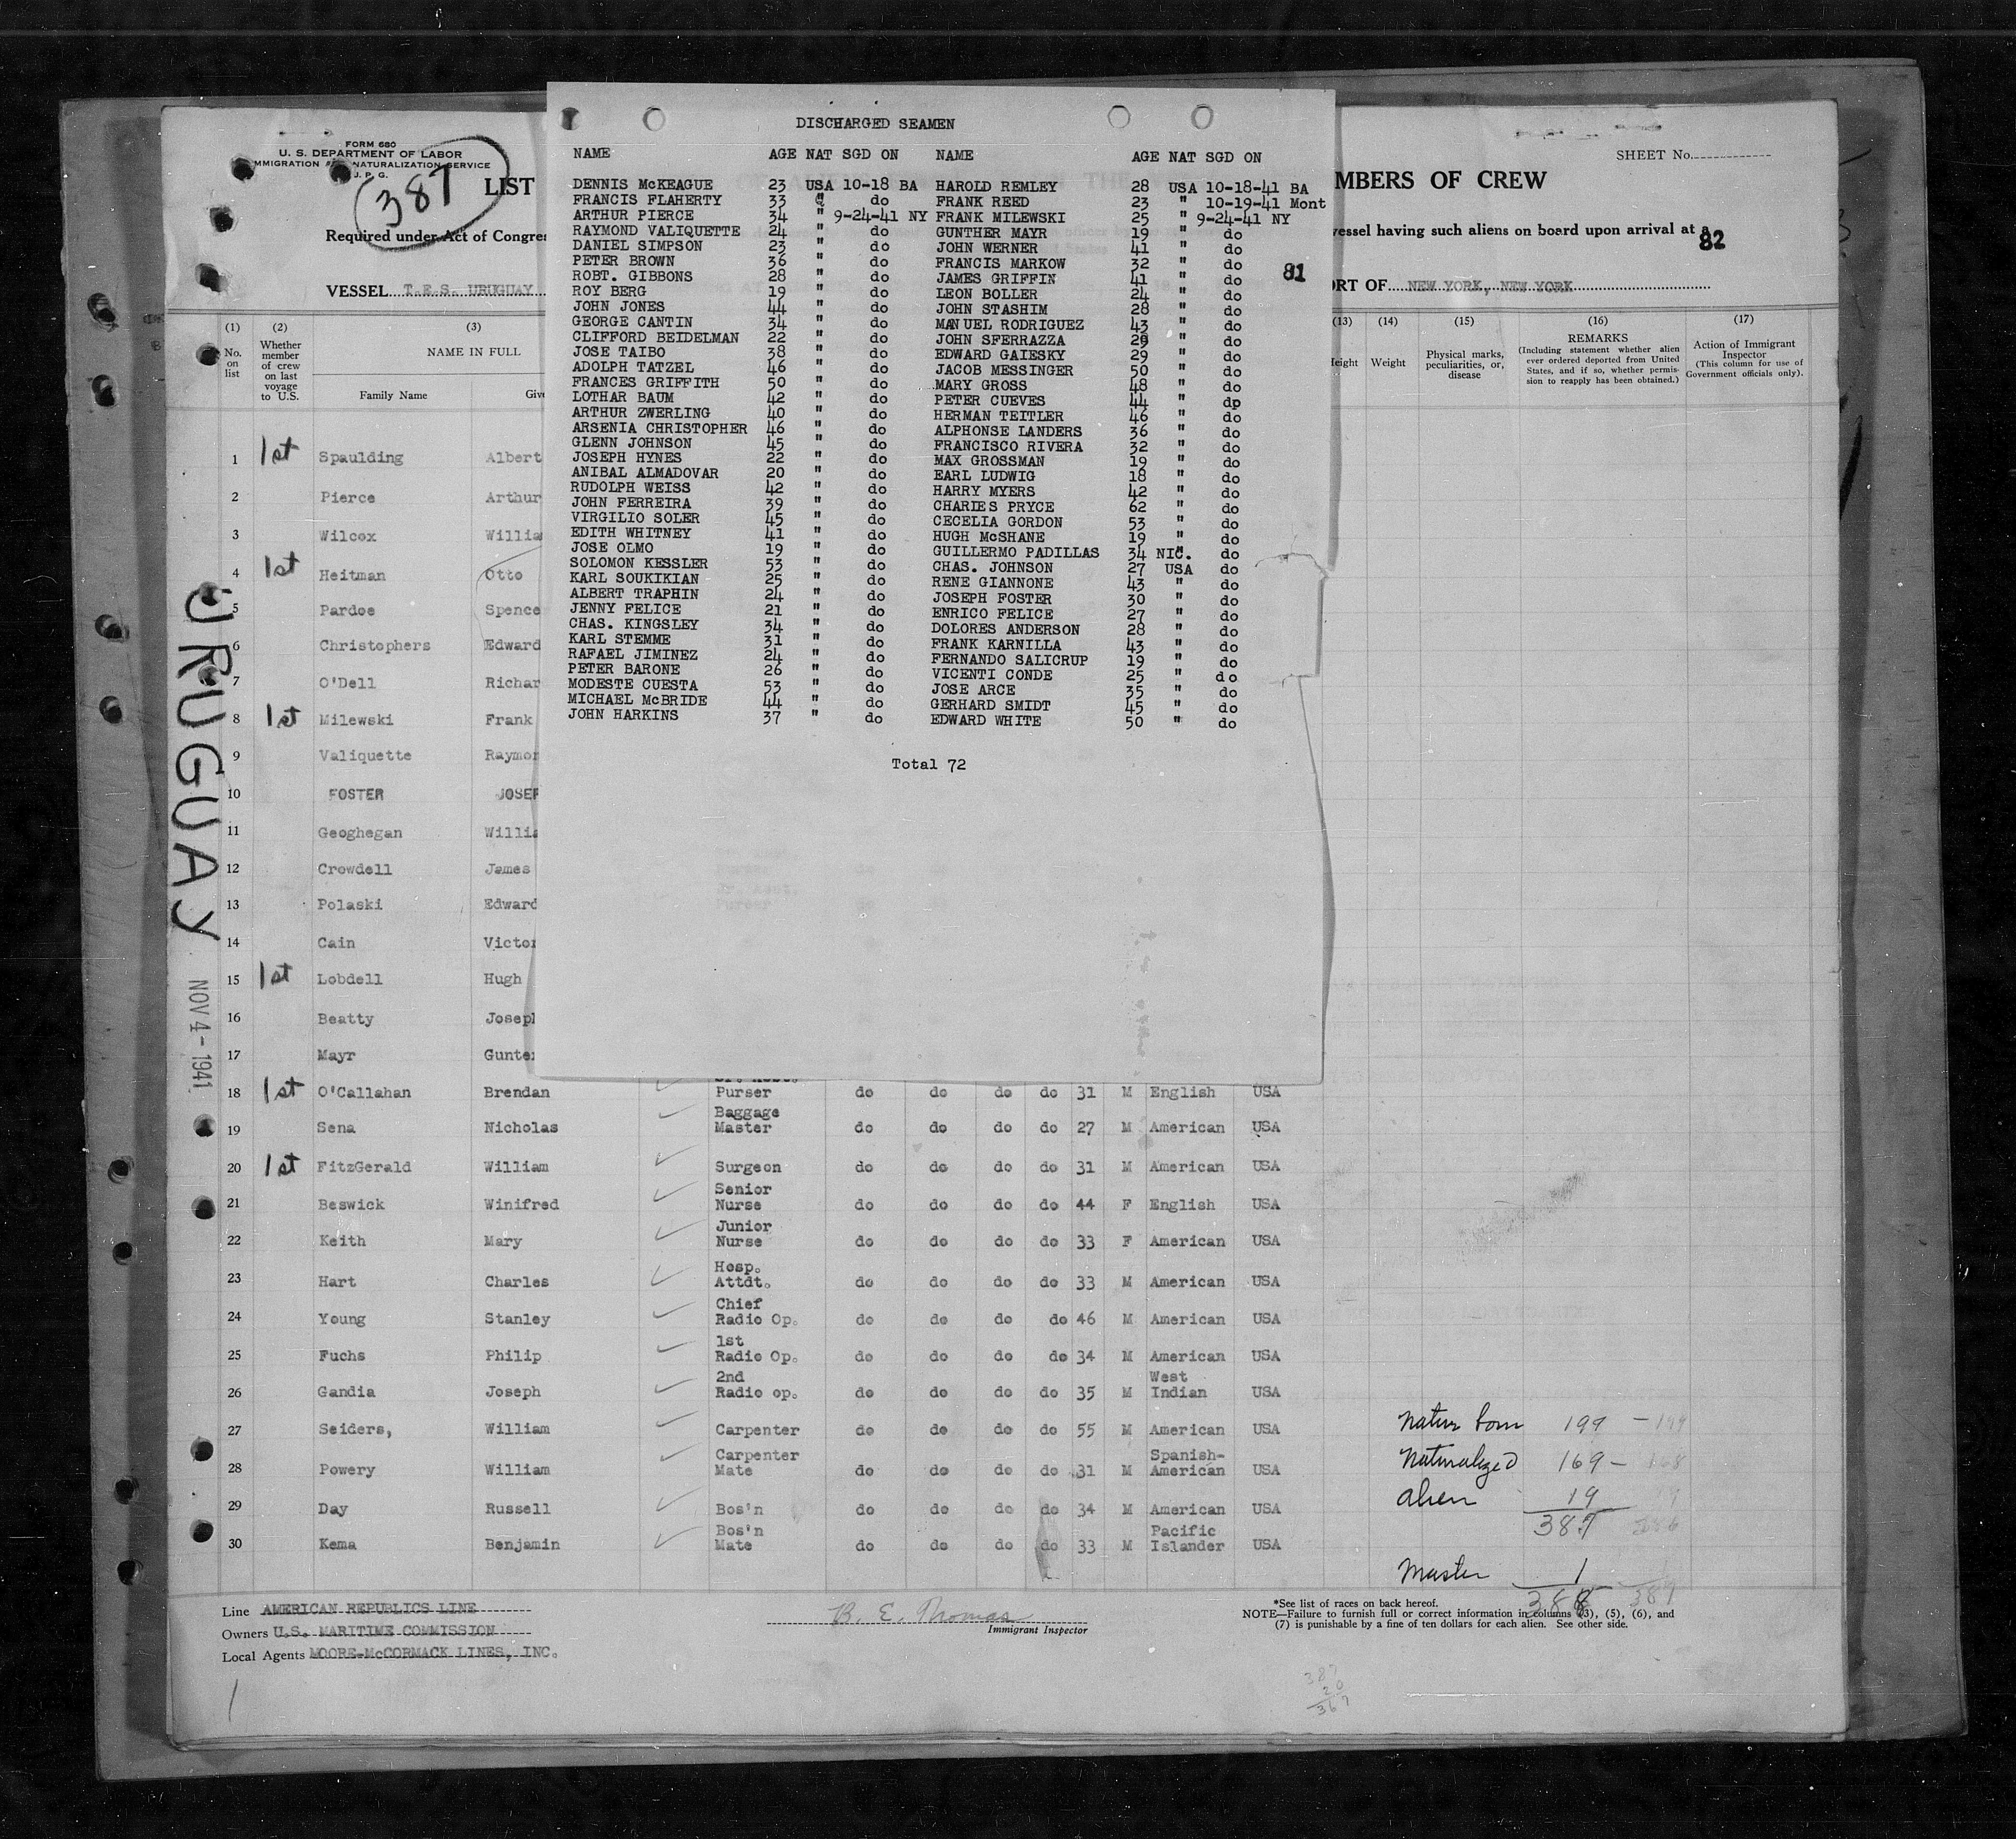 FORM 680
U. S. DEPARTMENT OF LABOR
IMMIGRATION NATURALIZATION SERVICE
J. P. G.
387
LIST
Required under Act of Congre
VESSEL T.E.S. URUGUAY
SHEET No.
MBERS OF CREW
vessel having such aliens on board upon arrival at a
82
ORT OF NEW YORK, NEW YORK
DISCHARGED SEAMEN
NAME AGE NAT SGD ON NAME AGE NAT SGD ON
DENNIS McKEAGUE 23 USA 10-18 BA HAROLD REMLEY 28 USA 10-18-41 BA
FRANCIS FLAHERTY 33 " do FRANK REED 23 " 10-19-41 Mont
ARTHUR PIERCE 34 " 9-24-41 NY FRANK MILEWSKI 25 " 9-24-41 NY
RAYMOND VALIQUETTE 24 " do GUNTHER MAYR 19 " do
DANIEL SIMPSON 23 " do JOHN WERNER 41 " do
PETER BROWN 36 " do FRANCIS MARKOW 32 " do
81
ROBT. GIBBONS 28 " do JAMES GRIFFIN 41 " do
ROY BERG 19 " do LEON BOLLER 24 " do
JOHN JONES 44 " do JOHN STASHIM 28 " do
GEORGE CANTIN 34 " do MANUEL RODRIGUEZ 43 " do
CLIFFORD BEIDELMAN 22 " do JOHN SFERRAZZA 29 " do
JOSE TAIBO 38 " do EDWARD GAIESKY 29 " do
ADOLPH TATZEL 46 " do JACOB MESSINGER 50 " do
FRANCES GRIFFITH 50 " do MARY GROSS 48 " do
LOTHAR BAUM 42 " do PETER CUEVES 44 " do
ARTHUR ZWERLING 40 " do HERMAN TEITLER 46 " do
ARSENIA CHRISTOPHER 46 " do ALPHONSE LANDERS 36 " do
GLENN JOHNSON 45 " do FRANCISCO RIVERA 32 " do
JOSEPH HYNES 22 " do MAX GROSSMAN 19 " do
ANIBAL ALMADOVAR 20 " do EARL LUDWIG 18 " do
RUDOLPH WEISS 42 " do HARRY MYERS 42 " do
JOHN FERREIRA 39 " do CHARLES PRYCE 62 " do
VIRGILIO SOLER 45 " do CECELIA GORDON 53 " do
EDITH WHITNEY 41 " do HUGH McSHANE 19 " do
JOSE OLMO 19 " do GUILLERMO PADILLAS 34 NIC. do
SOLOMON KESSLER 53 " do CHAS. JOHNSON 27 USA do
KARL SOUKIKIAN 25 " do RENE GIANNONE 43 " do
ALBERT TRAPHIN 24 " do JOSEPH FOSTER 30 " do
JENNY FELICE 21 " do ENRICO FELICE 27 " do
CHAS. KINGSLEY 34 " do DOLORES ANDERSON 28 " do
KARL STEMME 31 " do FRANK KARNILLA 43 " do
RAFAEL JIMINEZ 24 " do FERNANDO SALICRUP 19 " do
PETER BARONE 26 " do VICENTI CONDE 25 " do
MODESTE CUESTA 53 " do JOSE ARCE 35 " do
MICHAEL McBRIDE 44 " do GERHARD SMIDT 45 " do
JOHN HARKINS 37 " do EDWARD WHITE 50 " do
Total 72
(1) (2) (3) (13) (14) (15) (16) (17)
No. on list
Whether member of crew on last voyage to U.S.
NAME IN FULL
Family Name Give
eight Weight
Physical marks, peculiarities, or, disease
REMARKS
(Including statement whether alien ever ordered deported from United States, and if so, whether permission to reapply has been obtained.)
Action of Immigrant Inspector
(This column for use of Government officials only).
URUGUAY
NOV 4 - 1941
1 1st Spaulding Albert
2 Pierce Arthur
3 Wilcox Willia
4 1st Heitman Otto
5 Pardoe Spence
6 Christophers Edward
7 O'Dell Richar
8 1st Milewski Frank
9 Valiquette Raymon
10 FOSTER JOSEP
11 Geoghegan Willia
12 Crowdell James
13 Polaski Edward
14 Cain Victor
15 1st Lobdell Hugh
16 Beatty Joseph
17 Mayr Gunte
18 1st O'Callahan Brendan Purser do do do do 31 M English USA
19 Sena Nicholas Baggage Master do do do do 27 M American USA
20 1st FitzGerald William Surgeon do do do do 31 M American USA
21 Beswick Winifred Senior Nurse do do do do 44 F English USA
22 Keith Mary Junior Nurse do do do do 33 F American USA
23 Hart Charles Hosp. Attdt. do do do do 33 M American USA
24 Young Stanley Chief Radio Op. do do do do 46 M American USA
25 Fuchs Philip 1st Radio Op. do do do do 34 M American USA
26 Gandia Joseph 2nd Radio op. do do do do 35 M West Indian USA
27 Seiders, William Carpenter do do do do 55 M American USA
28 Powery William Carpenter Mate do do do do 31 M Spanish-American USA
29 Day Russell Bos'n do do do do 34 M American USA
30 Kema Benjamin Bos'n Mate do do do do 33 M Pacific Islander USA
Native born 199 - 199
Naturalized 169 - 168
alien 19 19
387 386
Master 1
388 387
Line AMERICAN REPUBLICS LINE
Owners U.S. MARITIME COMMISSION
Local Agents MOORE-McCORMACK LINES, INC.
B. E. Thomas
Immigrant Inspector
*See list of races on back hereof.
NOTE—Failure to furnish full or correct information in columns (3), (5), (6), and
(7) is punishable by a fine of ten dollars for each alien. See other side.
387
20
367